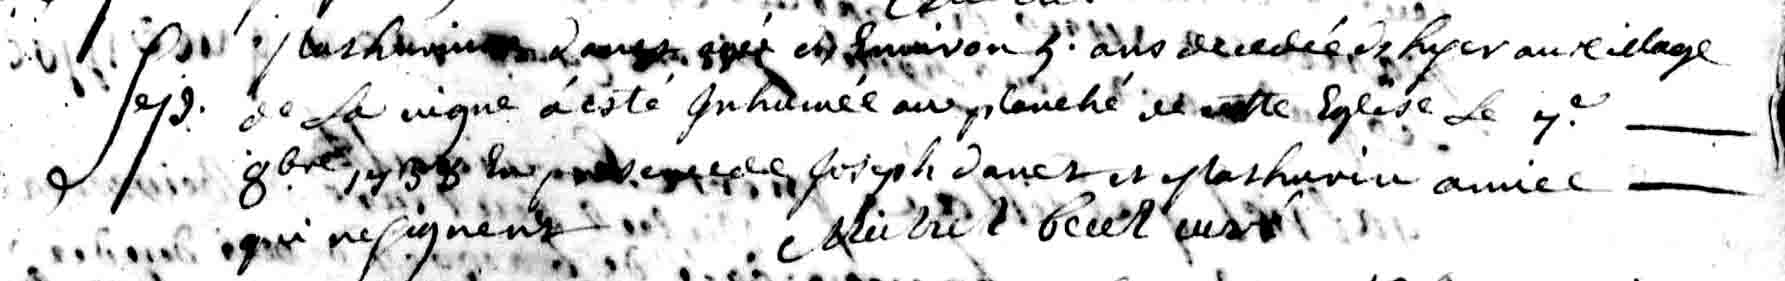 Mathurine Danet agée d'Environ 5. ans decedée d'hyer au village
Sep. de La vigne á esté Inhumée au plaché de cette Eglise Le 7.e
8bre 1738 En presence de Joseph Danet et Mathurin
qui ne signent Michel curé